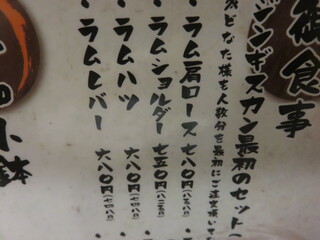 食事
ジンギスカン最初のセット(
※どなた様も人数分を最初にご注文頂いて
・ラム肩ロース 七八〇円(八五八)
・ラムショルダー 七五〇円(八二五)
・ラムハツ 六八〇円(七四八)
・ラムレバー 六八〇円(七四八)
小鉢